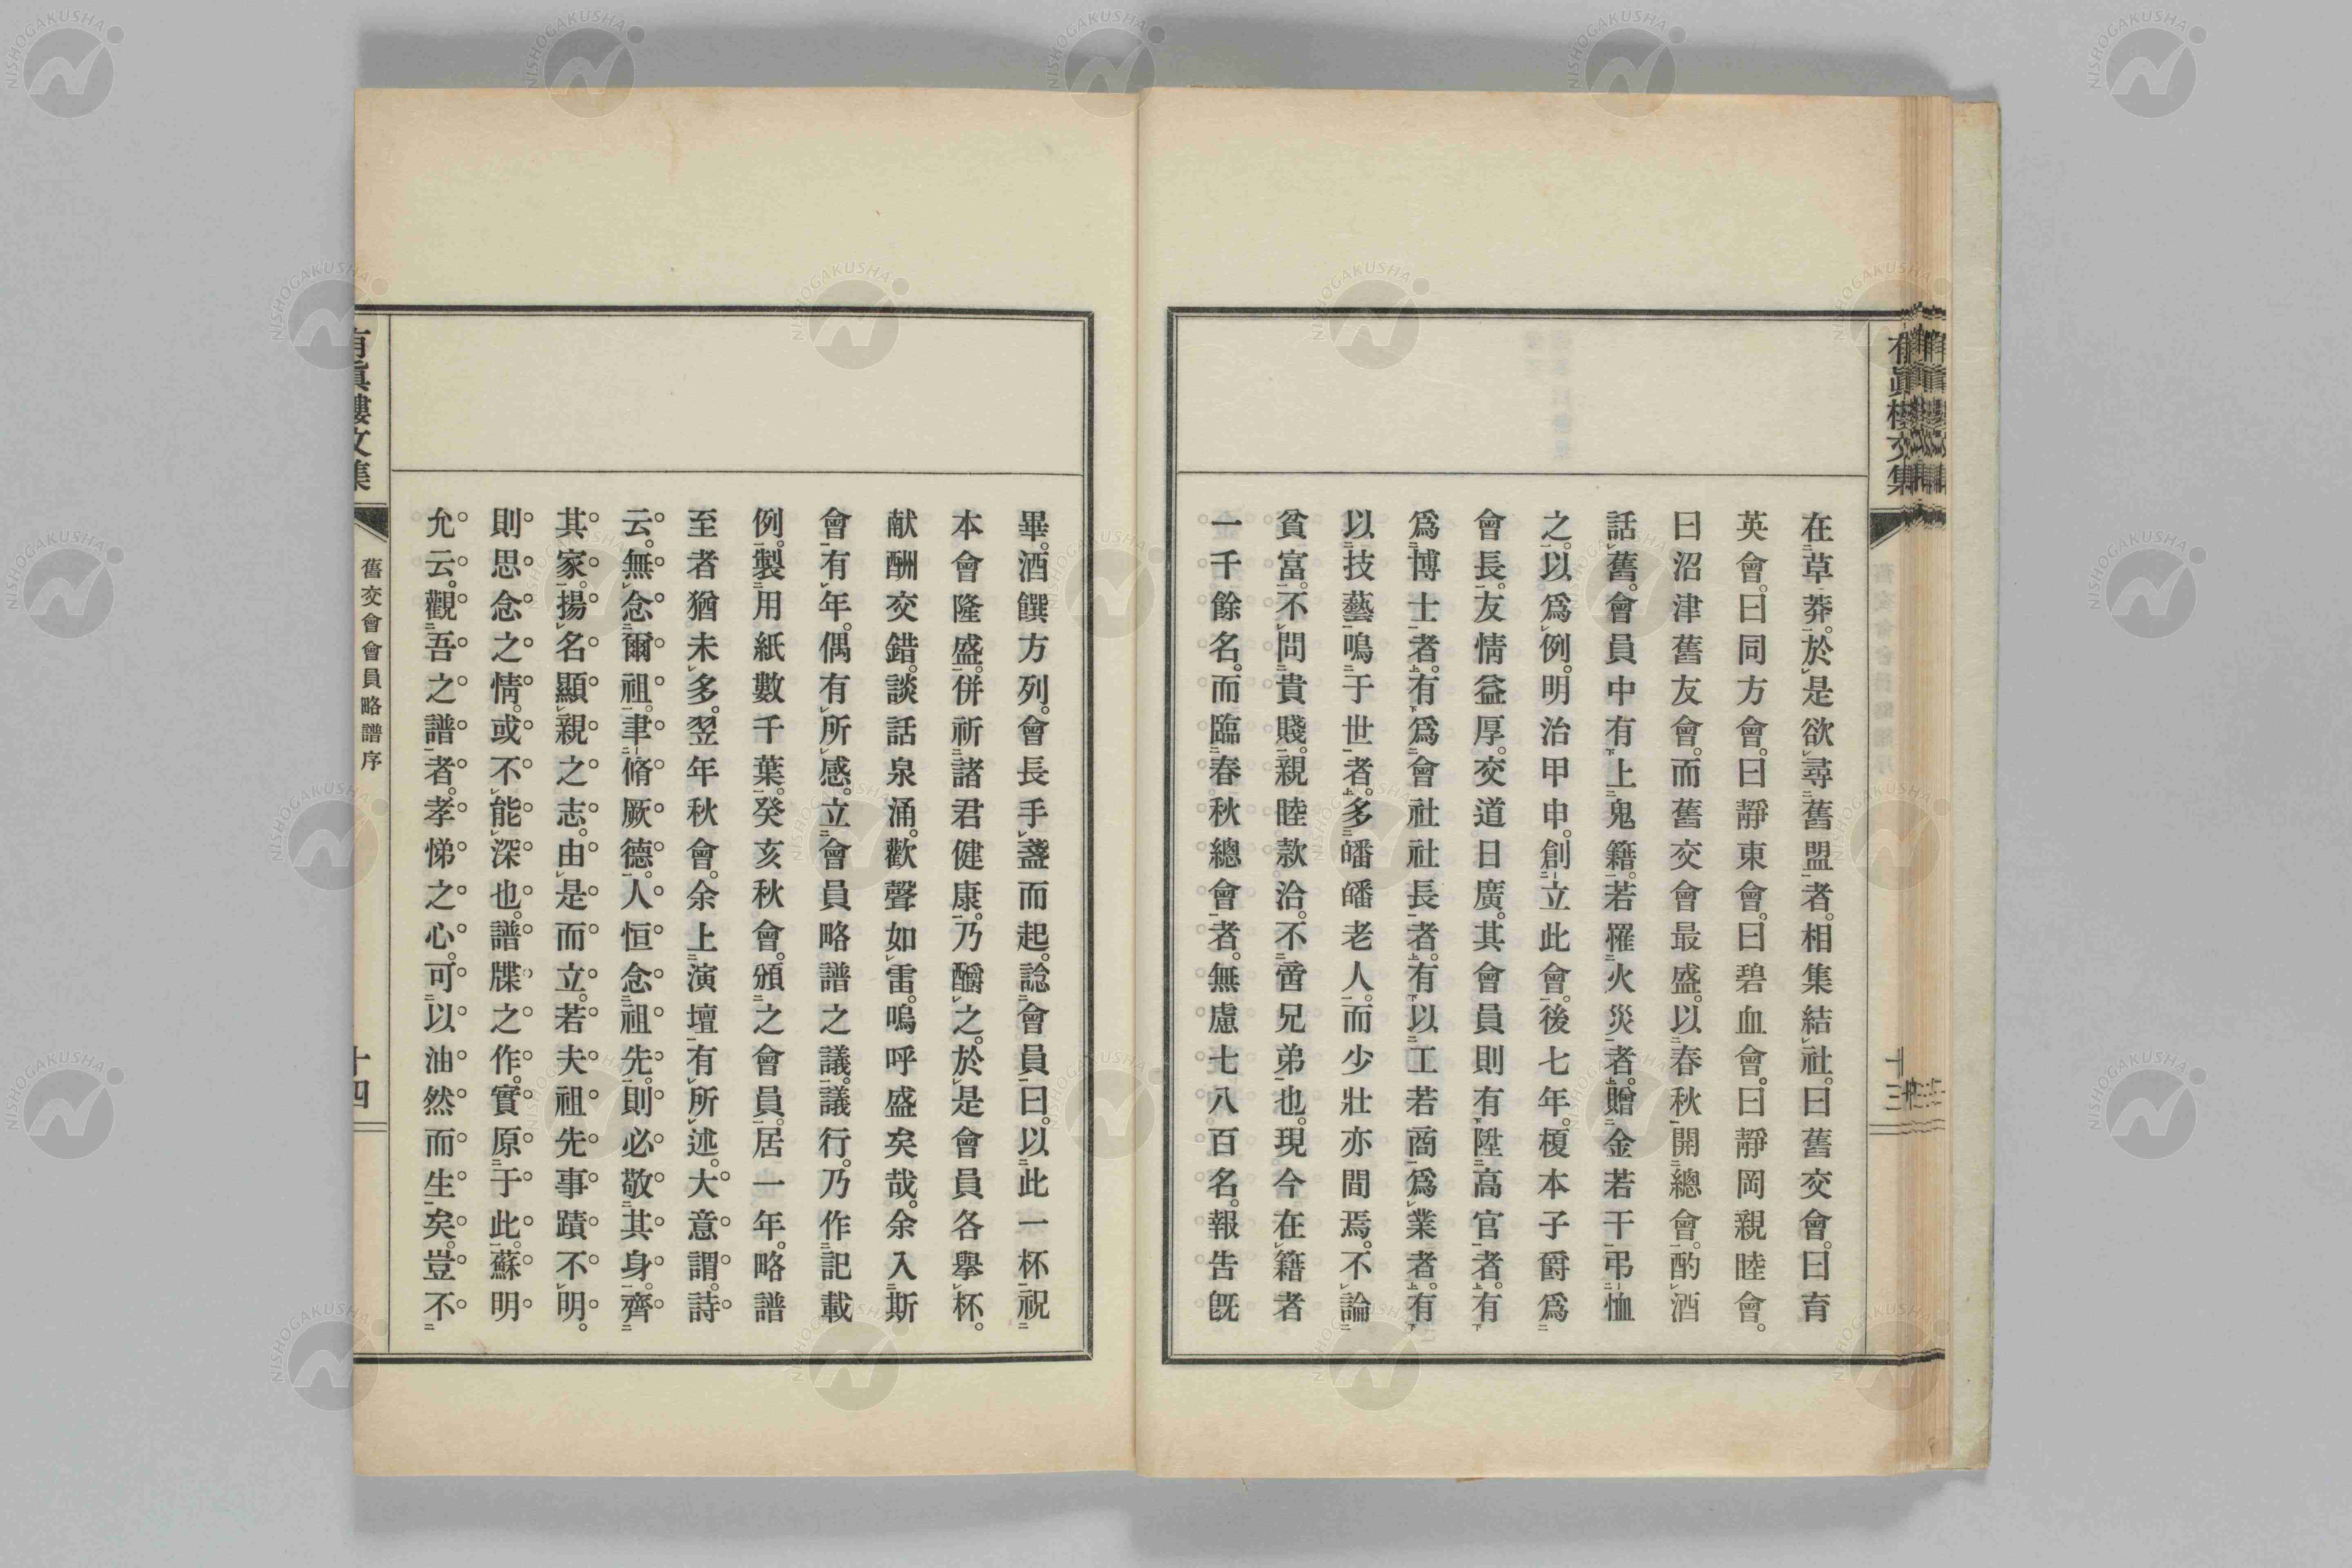 有眞樓文集
十三
在草莽。於是欲尋舊盟者。相集結社。曰舊交會。曰育
英會。曰同方會。曰靜東會。曰碧血會。曰靜岡親睦會。
曰沼津舊友會。而舊交會最盛。以春秋開總會。酌酒
話舊。會員中有上鬼籍。若罹火災者。贈金若干弔恤
之。以爲例。明治甲申。創立此會。後七年。榎本子爵爲
會長。友情益厚。交道日廣。其會員則有陞高官者。有
爲博士者。有爲會社社長者。有以工若商爲業者。有
以技藝鳴于世者。多皤皤老人。而少壯亦間焉。不論
貧富。不問貴賤。親睦款洽。不啻兄弟也。現今在籍者
一千餘名。而臨春秋總會者。無慮七八百名。報告旣
畢。酒饌方列。會長手盞而起。諗會員曰。以此一杯祝
本會隆盛。併祈諸君健康。乃釂之。於是會員各擧杯。
献酬交錯。談話泉涌。歡聲如雷。嗚呼盛矣哉。余入斯
會有年。偶有所感。立會員略譜之議。議行。乃作記載
例。製用紙數千葉。癸亥秋會。頒之會員。居一年。略譜
至者猶未多。翌年秋會。余上演壇有所述。大意謂。詩
云。無念爾祖。聿脩厥德。人恒念祖先。則必敬其身。齊
其家。揚名顯親之志。由是而立。若夫祖先事蹟不明。
則思念之情。或不能深也。譜牒之作。實原于此。蘇明
允云。觀吾之譜者。孝悌之心。可以油然而生矣。豈不
有眞樓文集
舊交會會員略譜序
十四
NISHOGAKUSHA